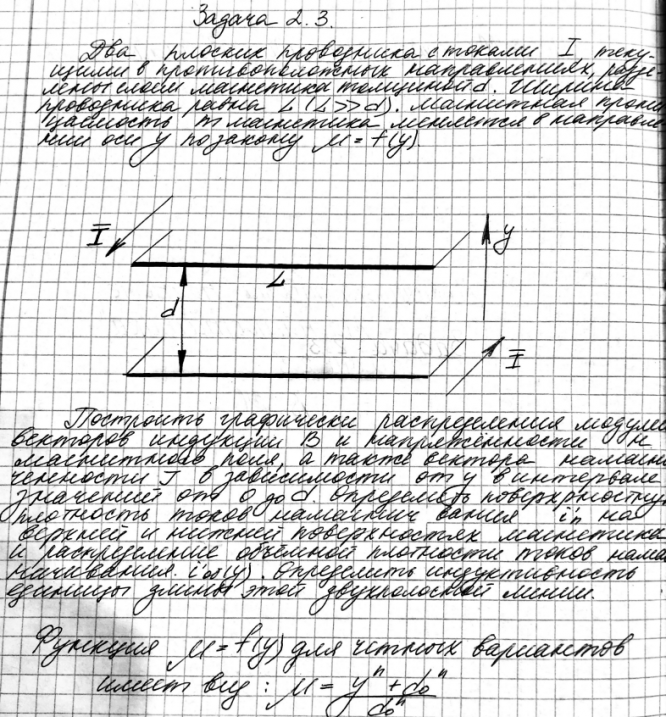 Задача 2.3.
Два плоских проводника с токами I теку-
щими в противоположных направлениях, разде-
лены слоем магнетика толщиной d. Ширина
проводника равна L (L>>d). Магнитная прони
цаемость магнетика меняется в направле
нии оси y по закону μ = f(y).
I
y
L
d
I
Построить графически распределения модулей
векторов индукции B и напряжённости H
магнитного поля, а также вектора намагни
ченности J в зависимости от y в интервале
значений от 0 до d. Определить поверхностную
плотность токов намагничивания i'п на
верхней и нижней поверхностях магнетика
и распределение объёмной плотности токов нама
гничивания i'об(y). Определить индуктивность
единицы длины этой двухполосной линии.
Функция μ = f(y) для чётных вариантов
имеет вид: μ = (yⁿ + d₀ⁿ) / d₀ⁿ